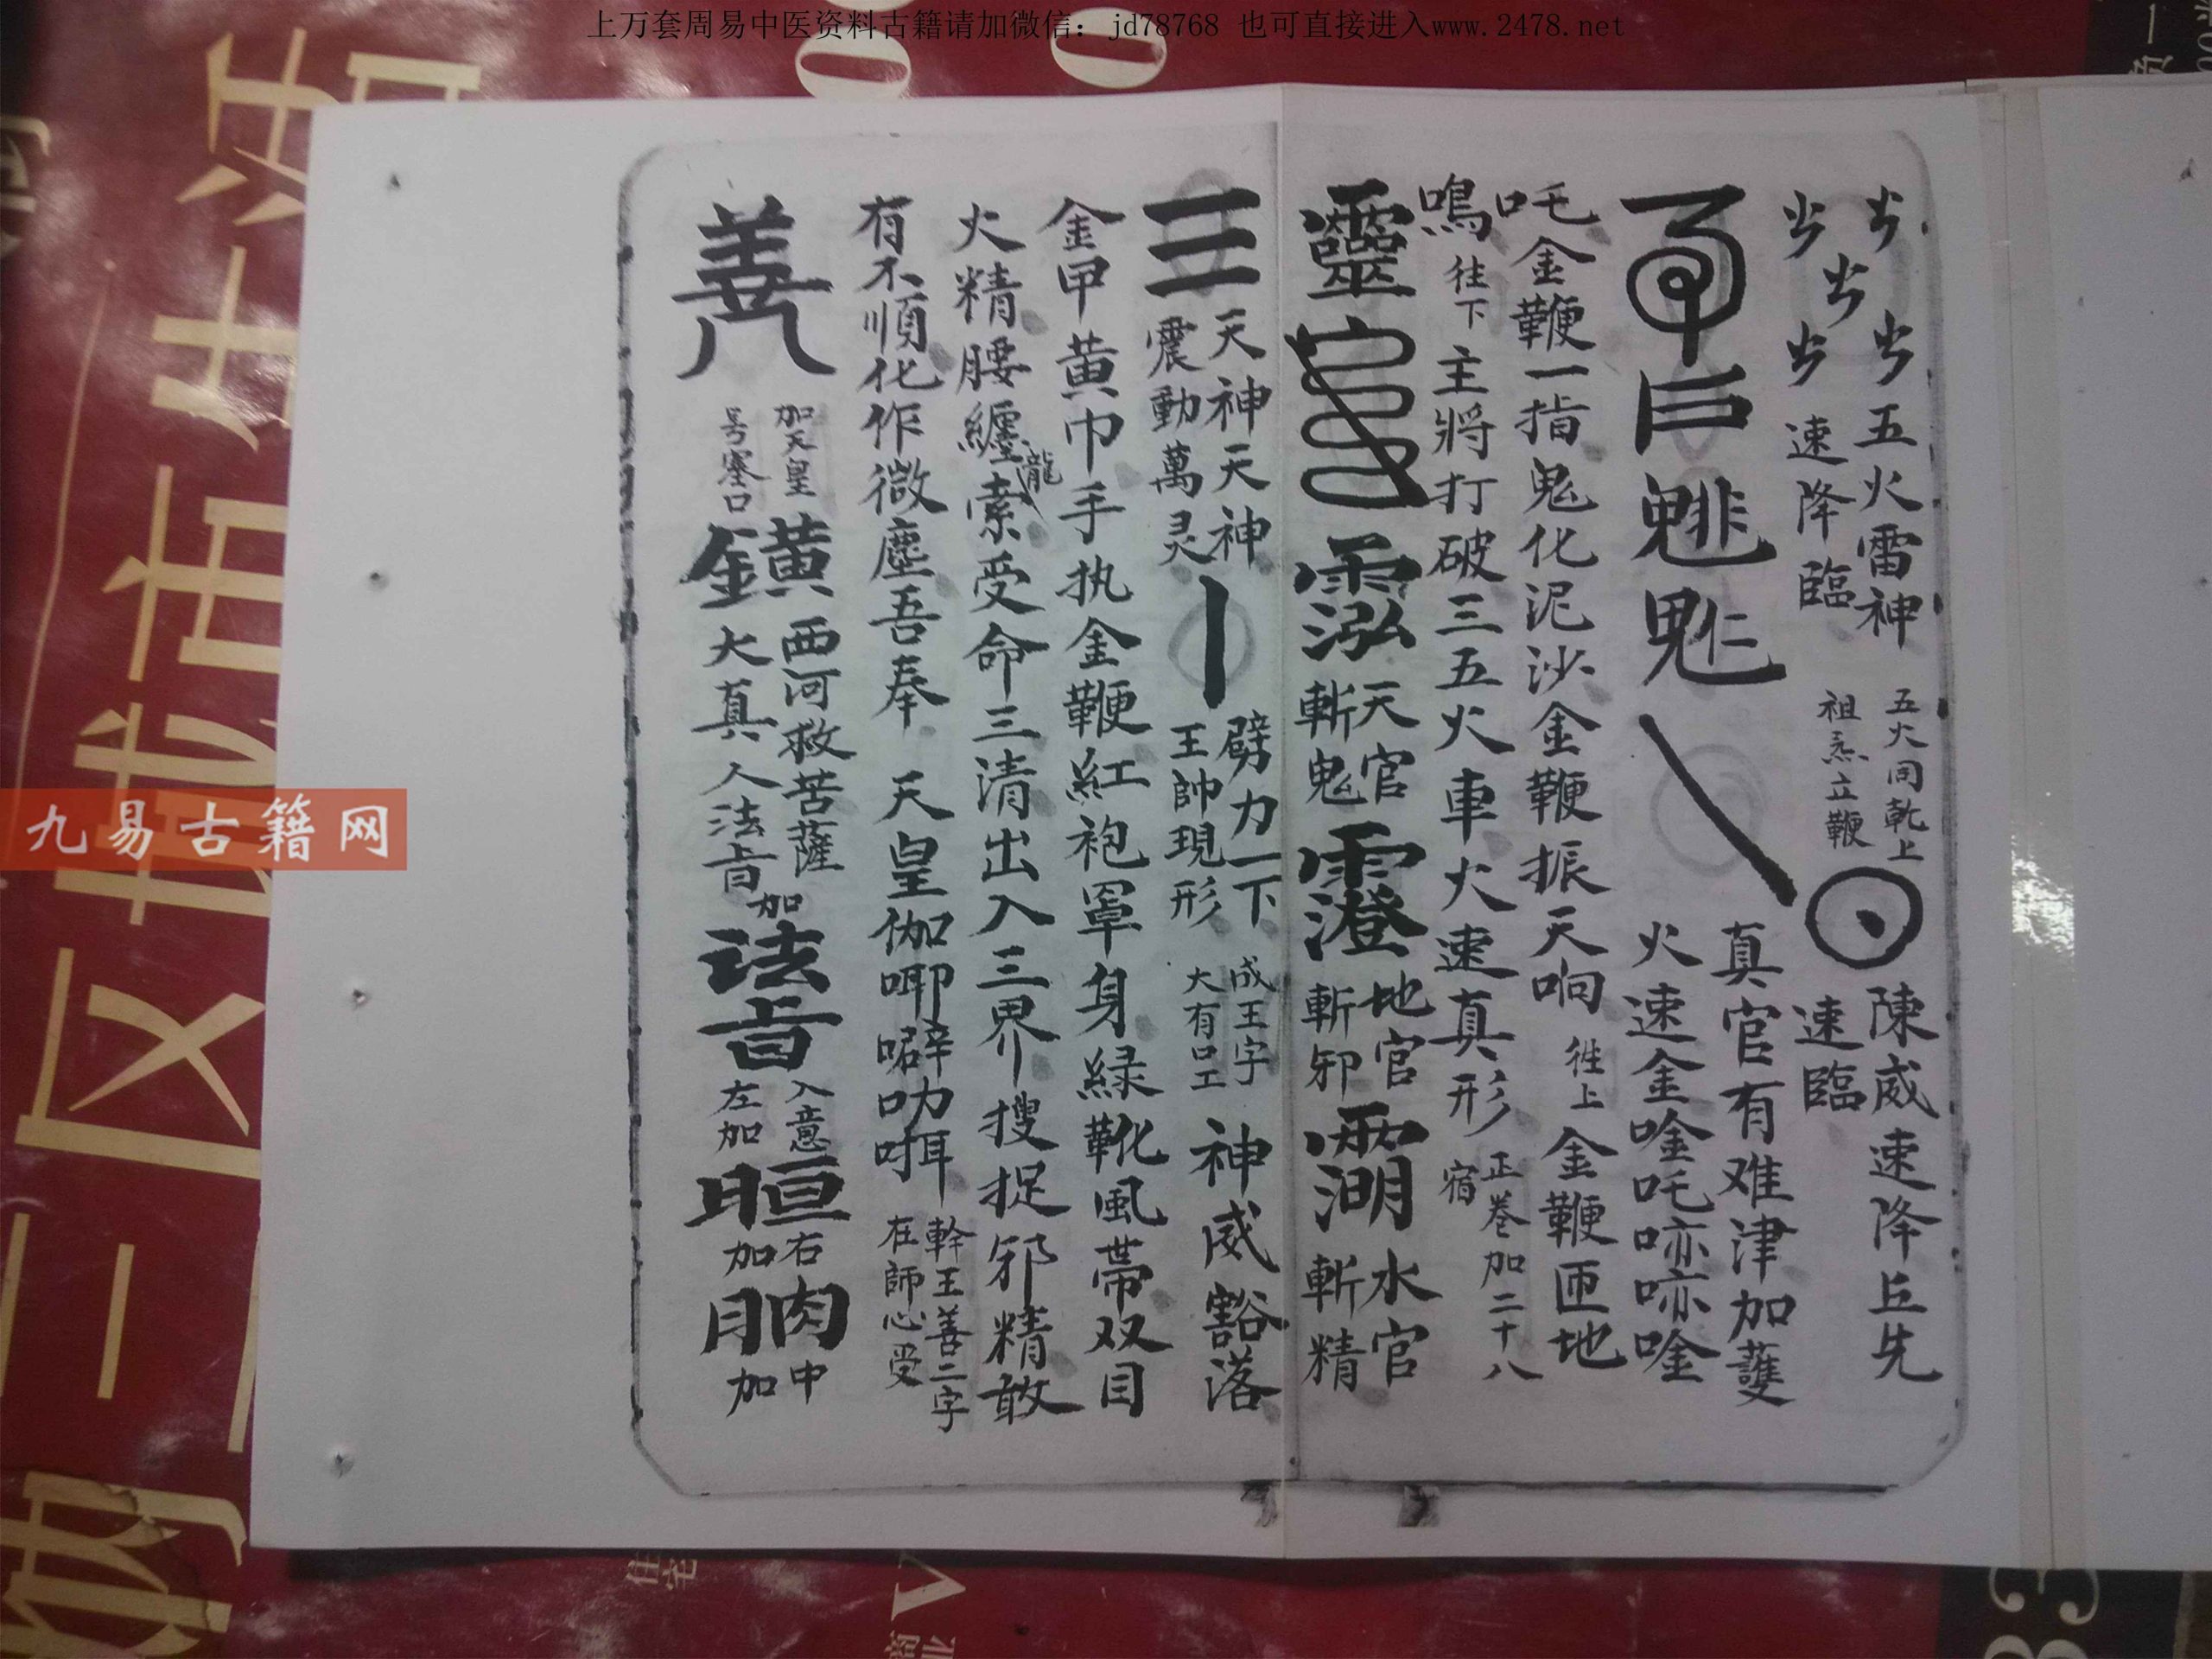 上万套周易中医资料古籍请加微信： jd78768 也可直接进入www.2478.net
五火雷神
速降臨
五火同乾上
祖炁立鞭
陳威速降丘先
速臨
真官有难津加護
火速金唫吒㖷㖷唫
吒金鞭一指鬼化泥沙金鞭振天响
往上
金鞭匝地
鳴
往下
主將打破三五火車火速真形
正卷加二十八
宿
靈
天官
斬鬼
地官
斬邪
水官
斬精
三
天神天神
震動萬灵
劈力一下
王帥現形
成王字
大有口工
神威豁落
金甲黄巾手执金鞭紅袍罩身緑靴風帯双目
火精腰纏龍索受命三清出入三界搜捉邪精敢
有不順化作微塵吾奉 天皇伽㖿噼叻咡
幹王善二字
在師心受
善
加天皇
号塞口
鐄
西河救苦薩
大真人法旨
加
法旨
入意
左加
暅
右
加
中
加
九易古籍网